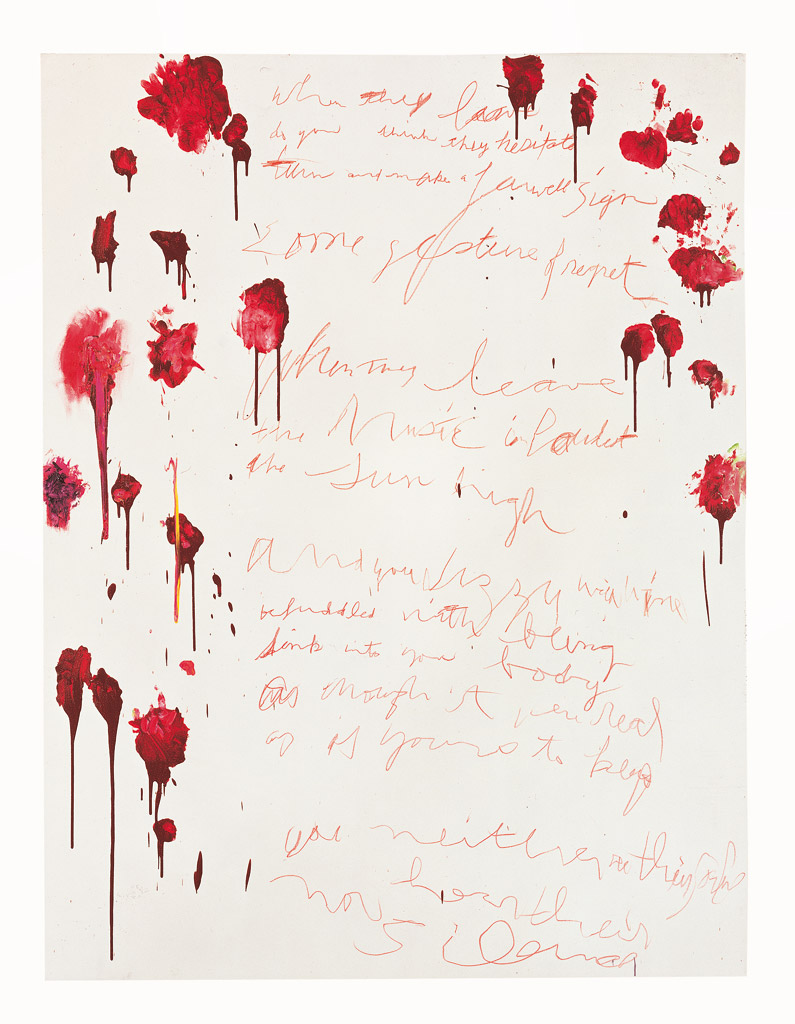 When they leave
do you think they hesitate
turn and make a farewell sign
Some gesture of regret
When they leave
the Music is loudest
the Sun high
And you dizzy with wine
befuddled with being
sink into your body
As though it were real
as if yours to keep
you neither see their
nor hear their
Silence